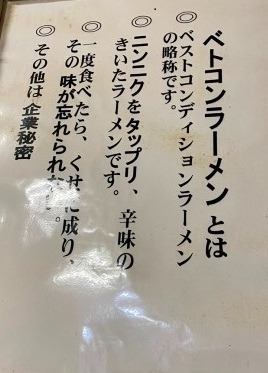 ベトコンラーメンとは
◎ベストコンディションラーメン
の略称です。
◎ニンニクをタップリ、辛味の
きいたラーメンです。
◎一度食べたら、くせに成り、
その味が忘れられな
◎その他は企業秘密